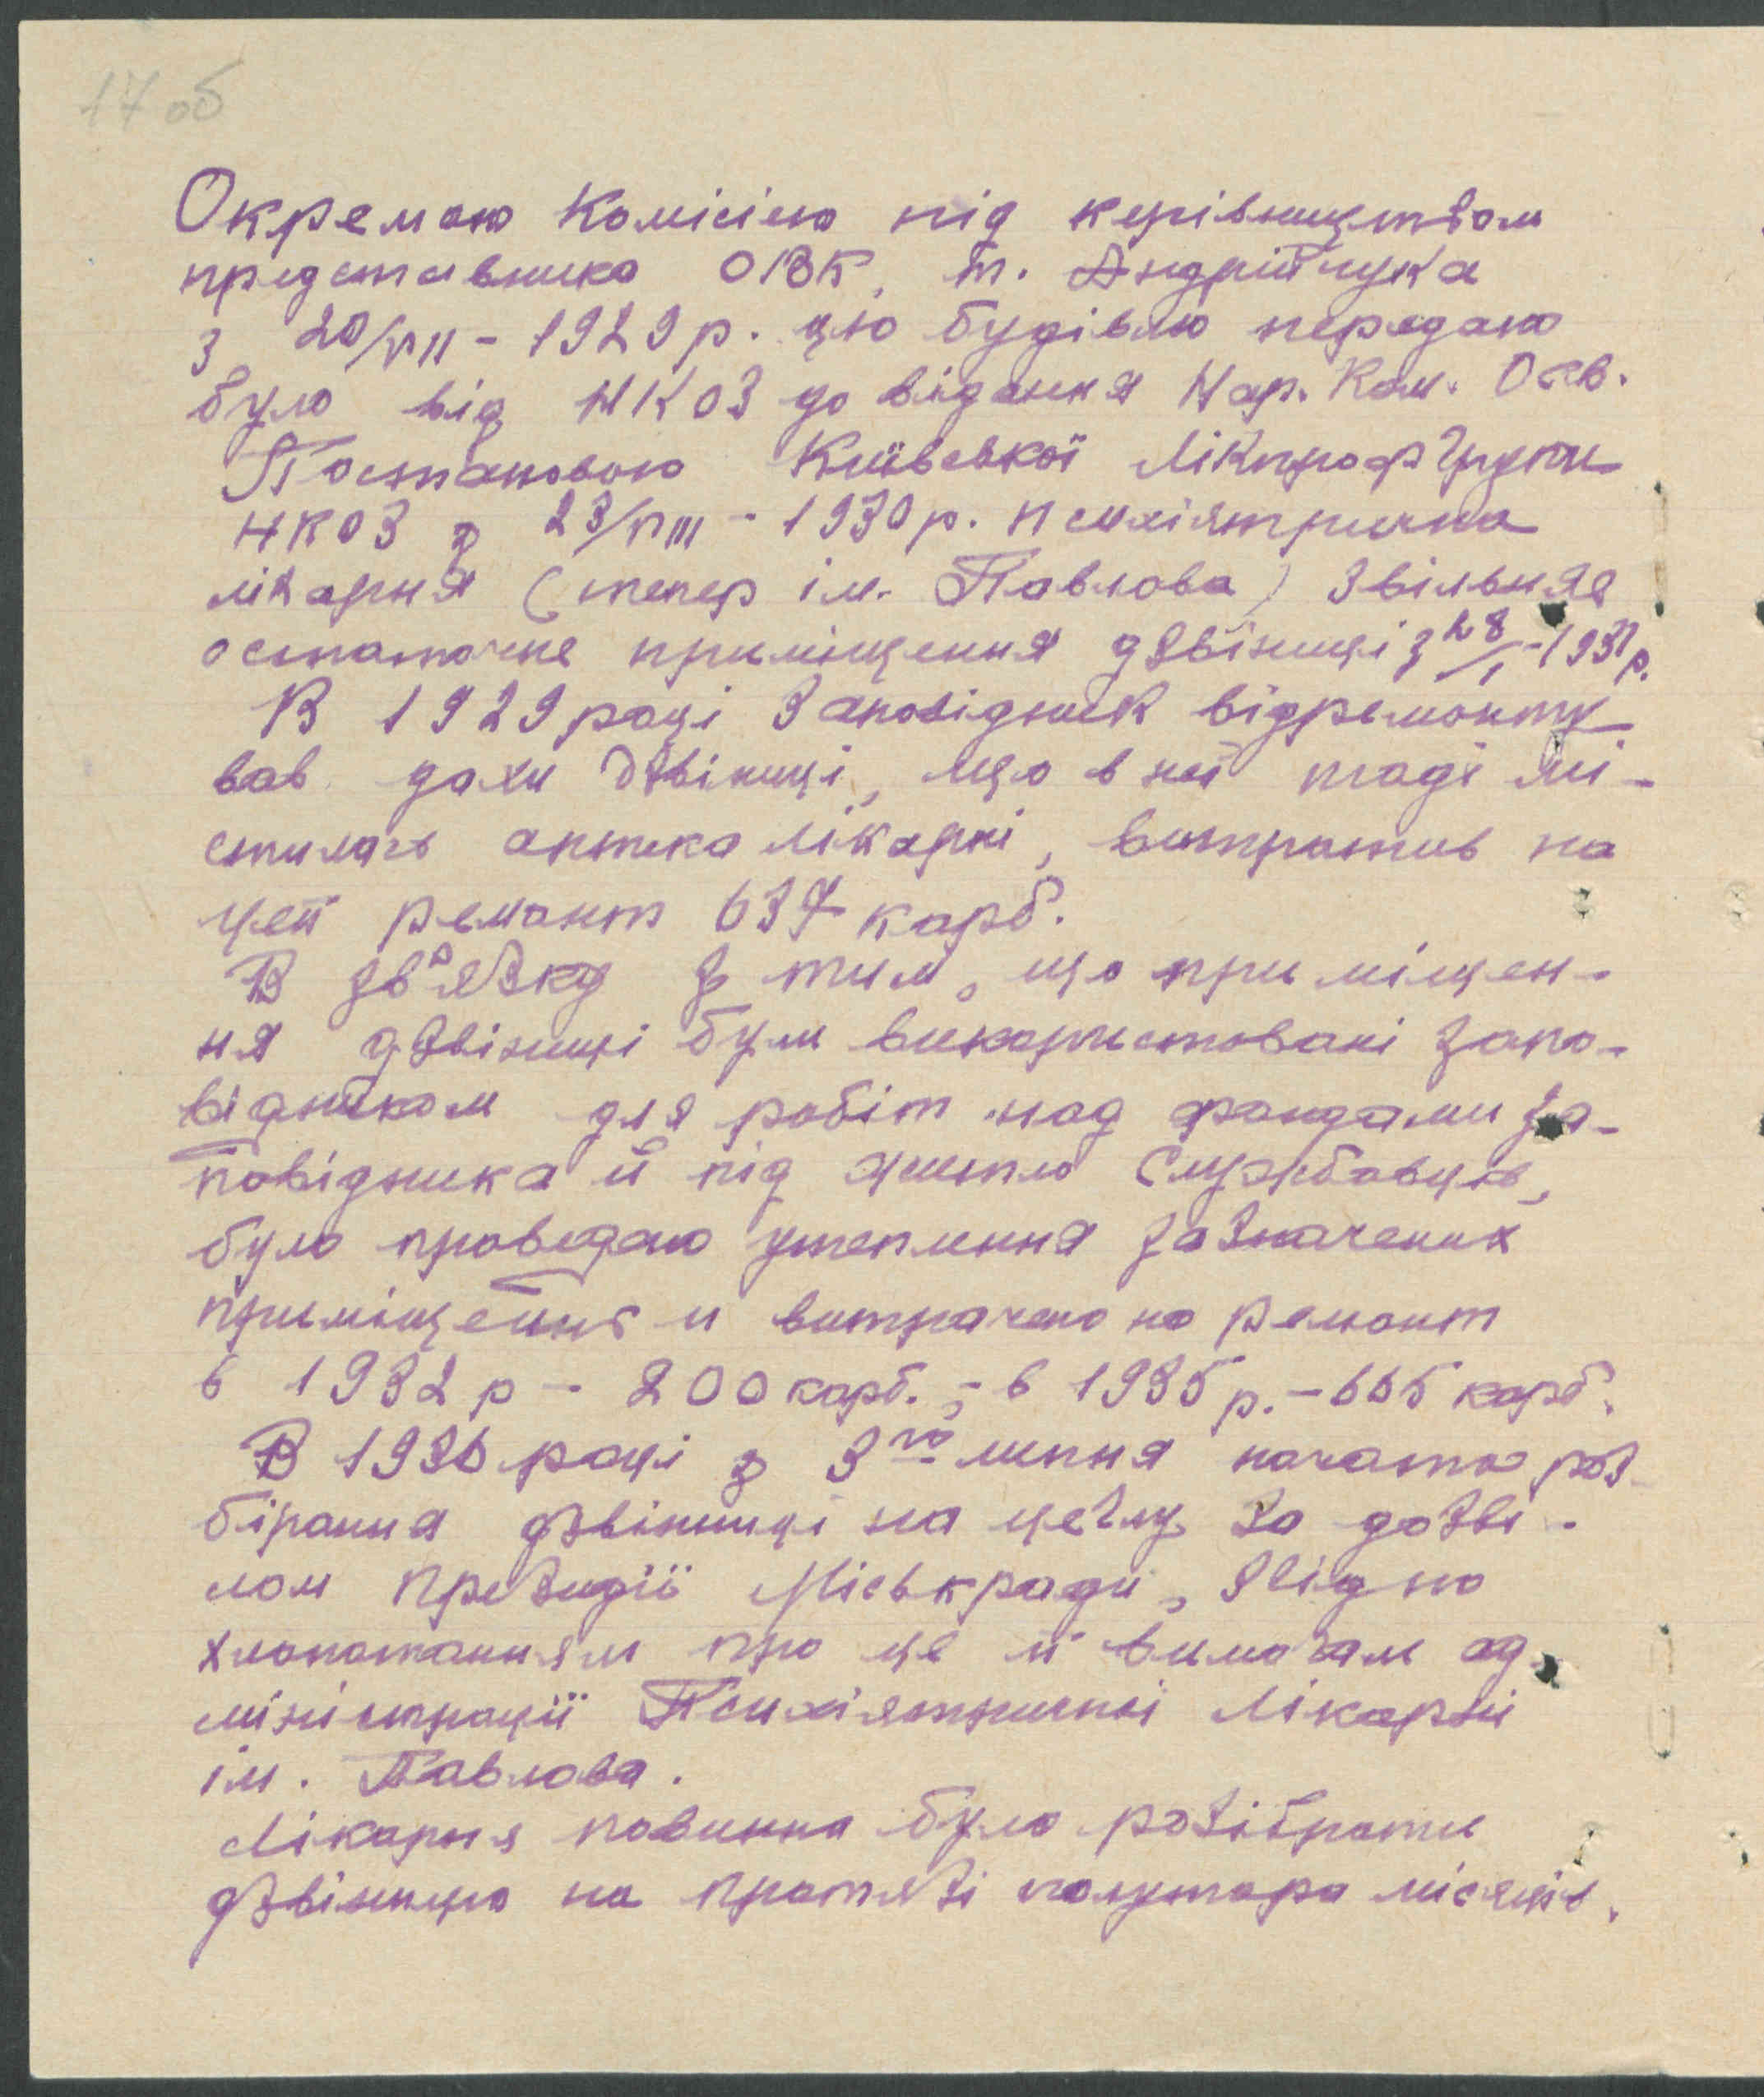 17 об
Окремою Комісією під керівництвом
представника ОВК, т. Андрійчука
з 20/VII - 1929 р. цю будівлю передано
було від НКОЗ до відання Нар. Ком. Осв.
Постановою Київської Лікпрофгрупи
НКОЗ з 23/VIII - 1930 р. психіятрична
лікарня (тепер ім. Павлова) звільняє
остаточне приміщення дзвіниці з 28/I - 1931 р.
В 1929 році Заповідник відремонту
вав дахи дзвіниці, що в ній тоді мі-
стилась аптека лікарні, витратив на
цей ремонт 637 карб.
В зв'язку з тим, що приміщен-
ня дзвіниці були використовані запо-
відником для робіт над фондами За-
повідника й під житло службовців,
було проведено утеплення зазначених
приміщеннь и витрачено на ремонт
в 1932 р - 200 карб., - в 1935 р. - 665 карб.
В 1936 році з 3го липня начато роз
бірання дзвіниці на цеглу за дозві-
лом Президії Міськради, згідно
хлопотанням про це й вимогам ад-
міністрації Психіятричної Лікарні
ім. Павлова.
Лікарня повинна було розібрати
дзвіницю на протязі полутора місяців.